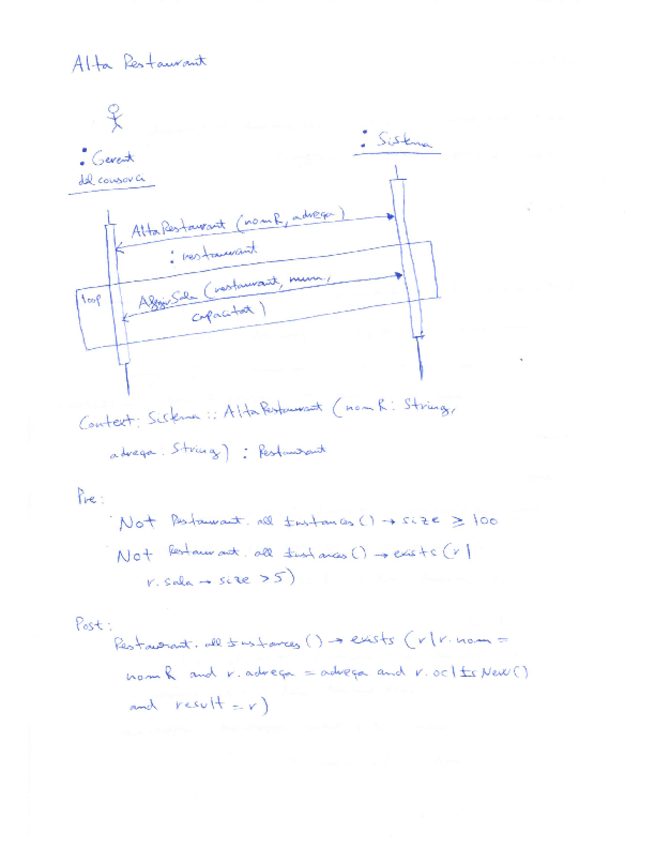 Alta Restaurant
: Gerent
del consorci
: Sistema
AltaRestaurant (nomR, adreça)
: restaurant
loop
AfegirSala (restaurant, num,
capacitat)
Context: Sistema :: AltaRestaurant (nomR: String,
adreça: String) : Restaurant
Pre:
Not Restaurant. all Instances () → size ≥ 100
Not Restaurant. all Instances () → exists (r |
r. sala → size > 5)
Post:
Restaurant. all Instances () → exists (r | r. nom =
nomR and r. adreça = adreça and r. oclIsNew()
and result = r)